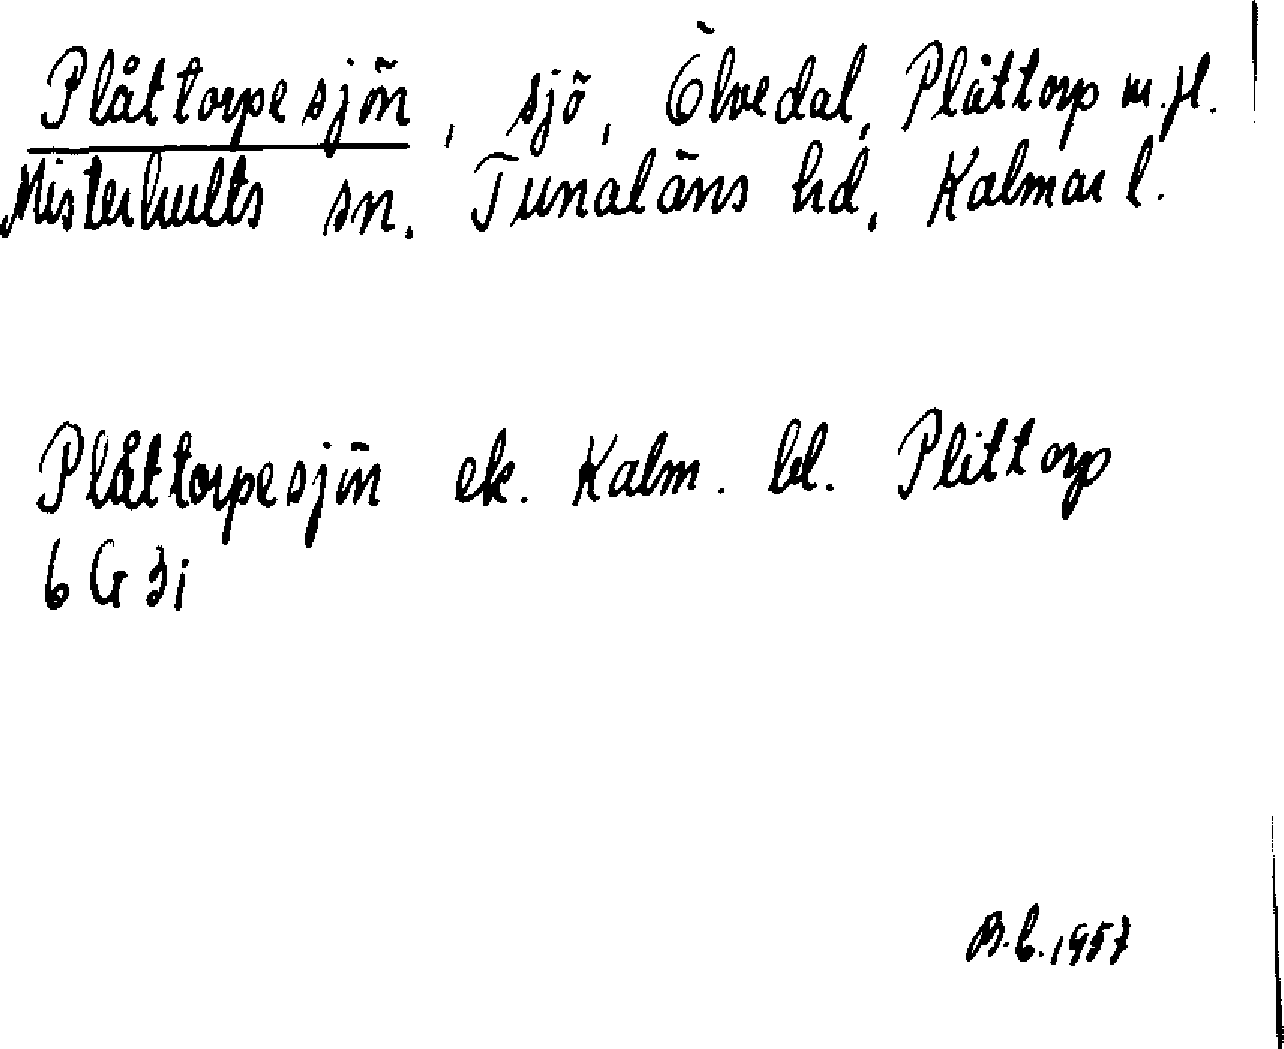 Plåttorpesjön, sjö, Ölvedal, Plåttorp m.fl.
Misterhults sn. Tunaläns hd, Kalmar l.
Plåttorpesjön ek. Kalm. bl. Plittorp
6 G 3i
B.L. 1957